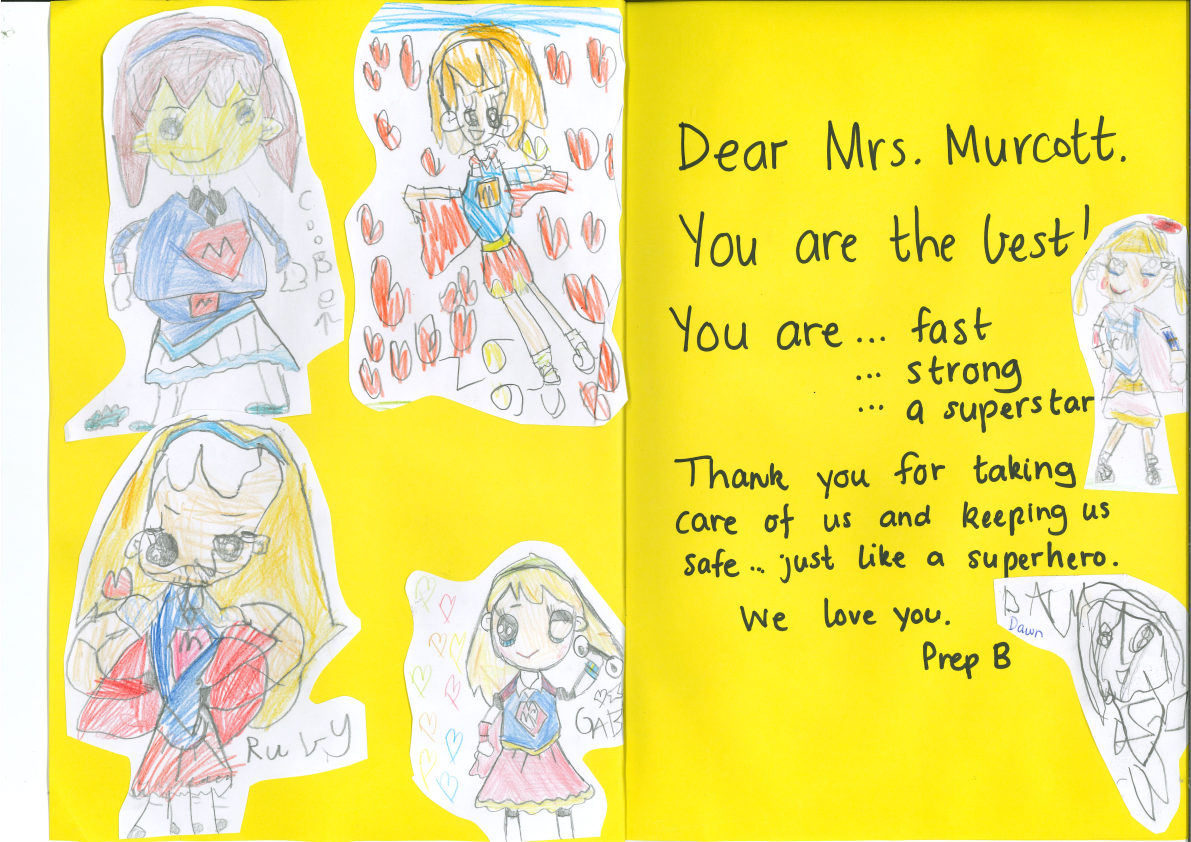 M
M
M
C..Ber
M
M
Ruby
M
GAB
Dear Mrs. Murcott.
You are the best!
You are ... fast
... strong
... a superstar
Thank you for taking
care of us and keeping us
safe... just like a superhero.
We love you.
Prep B
M
DAWN
Dawn